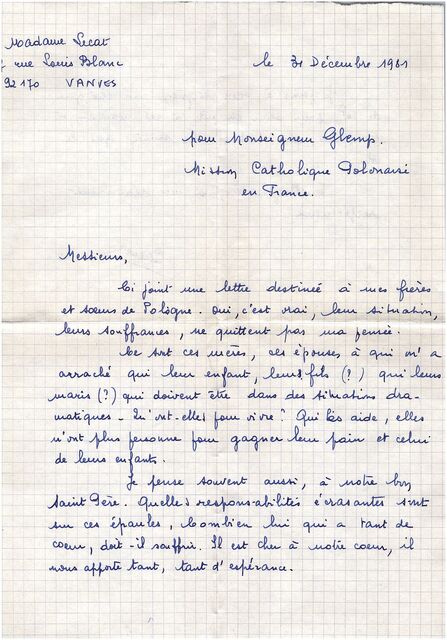 Madame Lecat
rue Louis Blanc
92170 VANVES
le 31 Décembre 1981
pour Monseigneur Glemp.
Mission Catholique Polonaise
en France.
Messieurs,
Ci joint une lettre destinée à mes frères
et sœurs de Pologne. Oui, c'est vrai, leur situation,
leurs souffrances, ne quittent pas ma pensée.
Ce sont ces mères, ces épouses à qui on a
arraché qui leur enfant, leurs fils (?) qui leurs
maris (?) qui doivent être dans des situations dra-
matiques - Qu'ont-elles pour vivre? Qui les aide, elles
n'ont plus personne pour gagner leur pain et celui
de leurs enfants.
Je pense souvent aussi, à notre bon
Saint Père. Quelles responsabilités écrasantes sont
sur ces épaules, combien lui qui a tant de
coeur, doit-il souffrir. Il est cher à notre coeur, il
nous apporte tant, tant d'espérance.